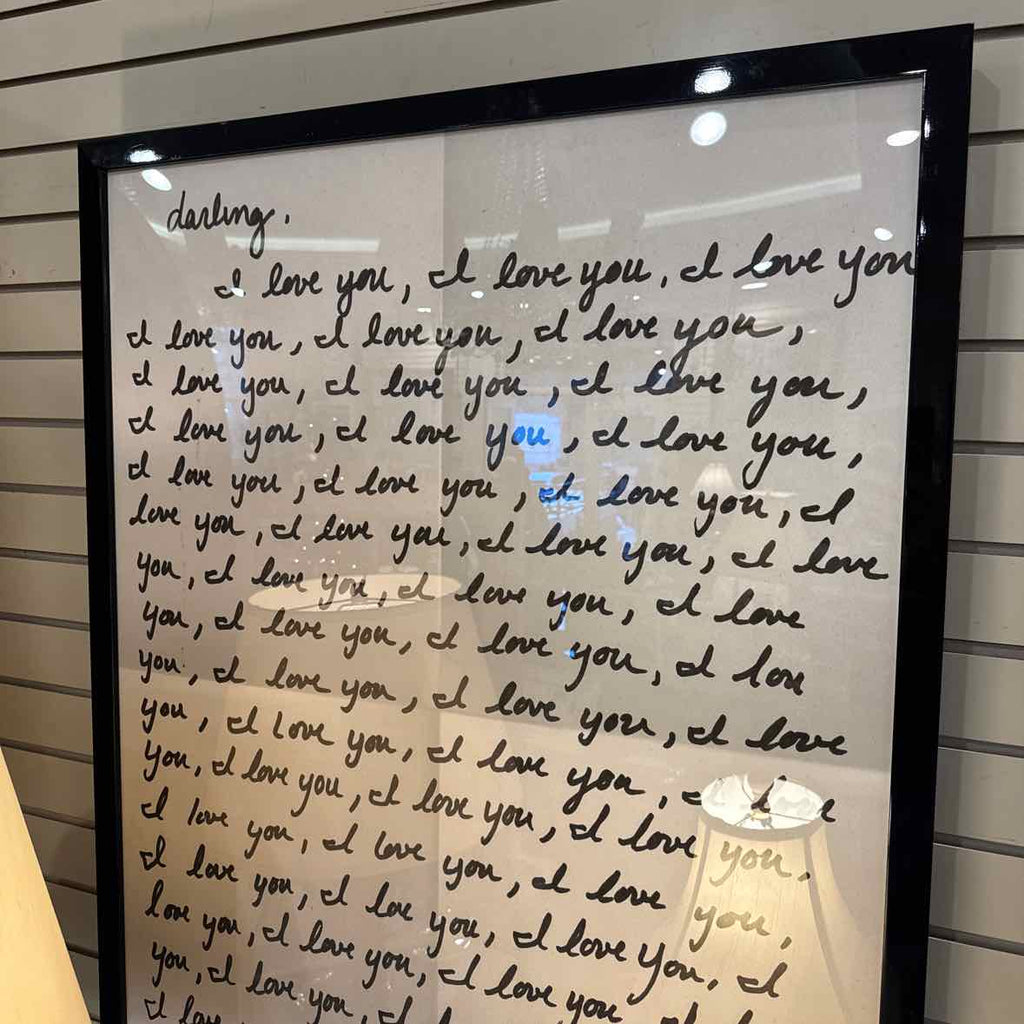 darling.
I love you, I love you, I love you
I love you, I love you, I love you,
I love you, I love you, I love you,
I love you, I love you, I love you,
I love you, I love you, I love you, I
love you, I love you, I love you, I love
you, I love you, I love you, I love
you, I love you, I love you, I lov
you, I love you, I love you, I love
you, I love you, I love you,
you, I love you, I love you, I love you.
I love you, I love you, I love you,
I love you, I love you, I love you, I
love you, I love you, I love you
you, I love you, I
I love